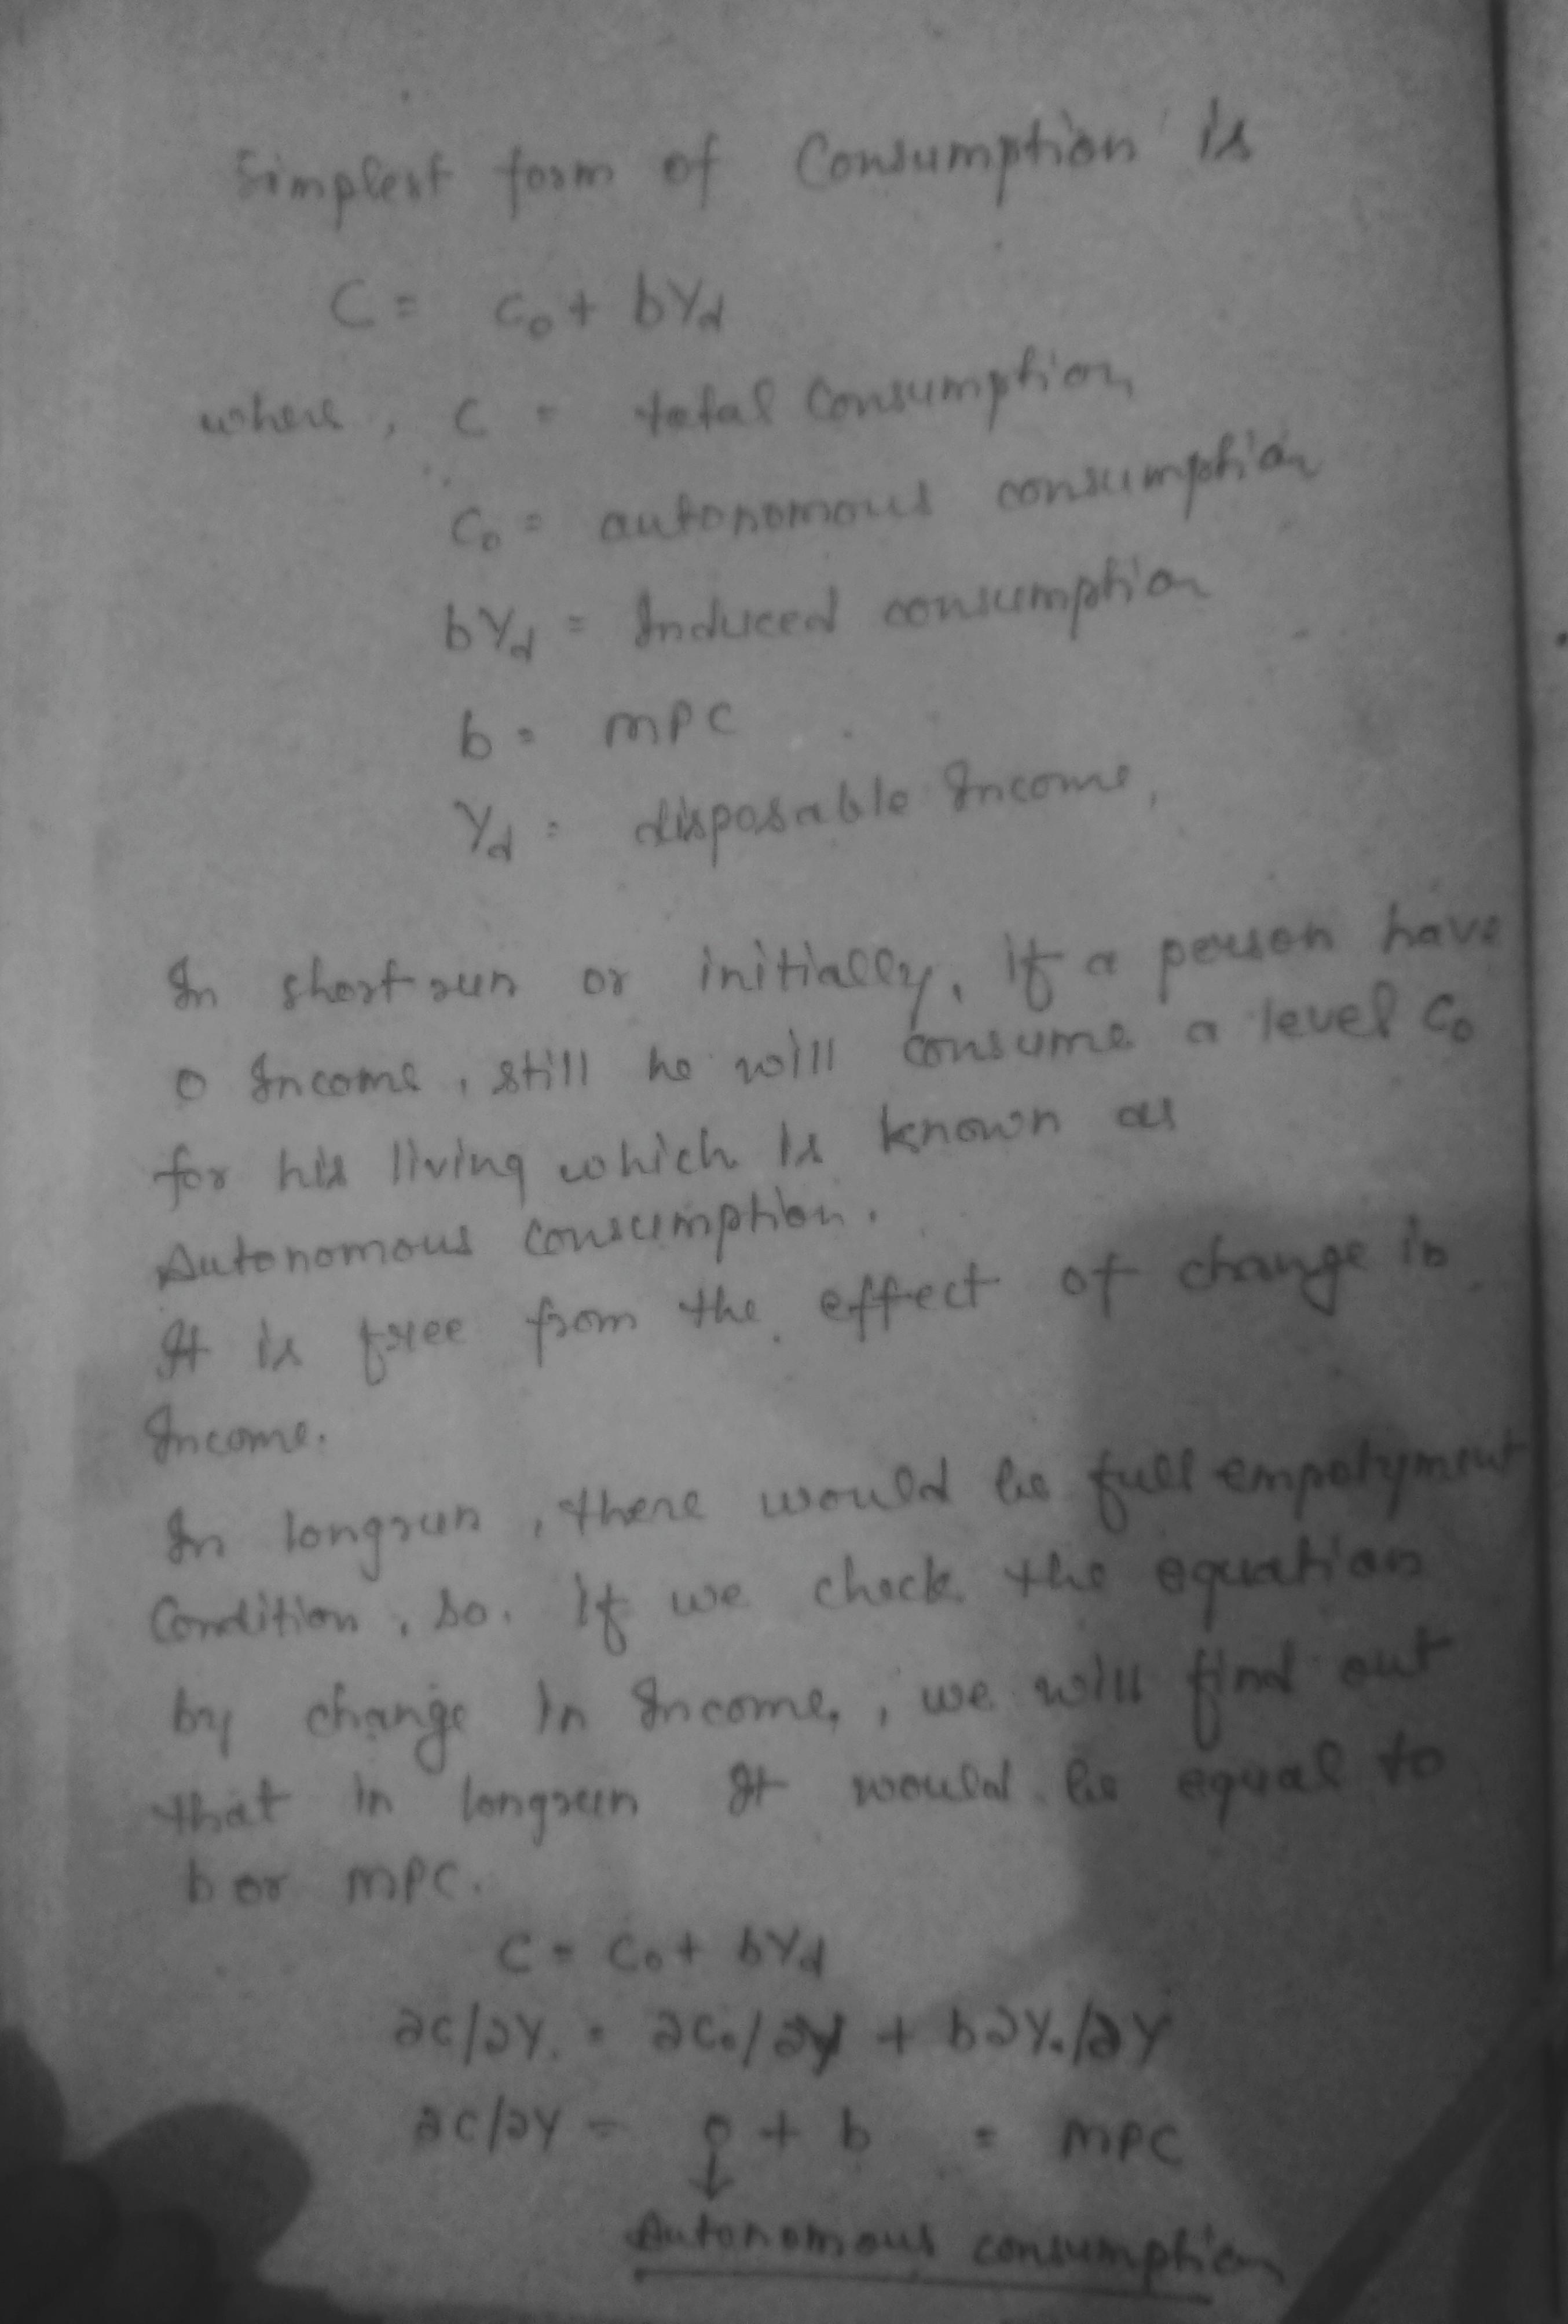 Simplest form of Consumption is
C = C₀ + bYd
where, C = total Consumption
C₀ = autonomous consumption
bYd = Induced consumption
b = MPC
Yd = disposable Income,
In short run or initially, if a person have
0 Income, still he will consume a level C₀
for his living which is known as
Autonomous Consumption.
It is free from the effect of change in
Income.
In longrun, there would be full empolyment
Condition, so. If we check the equation
by change in Income, , we will find out
that in longrun It would be equal to
b or MPC.
C = C₀ + bYd
∂C/∂Y. = ∂C₀/∂Y + b∂Y₀/∂Y
∂C/∂Y = 0 + b = MPC
↓
Autonomous consumption